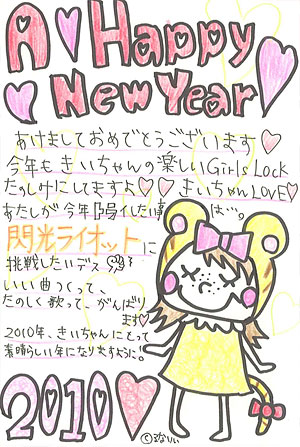 A Happy
New Year
あけましておめでとうございます
今年もきいちゃんの楽しいGirls Lock
たのしみにしてますよ きいちゃんLOVE
あたしが今年トライしたい事は…。
閃光ライオットに
挑戦したいデス
いい曲つくって、
たのしく歌って、がんばり
ます
2010年、きいちゃんにとって
素晴らしい年になりますように。
2010